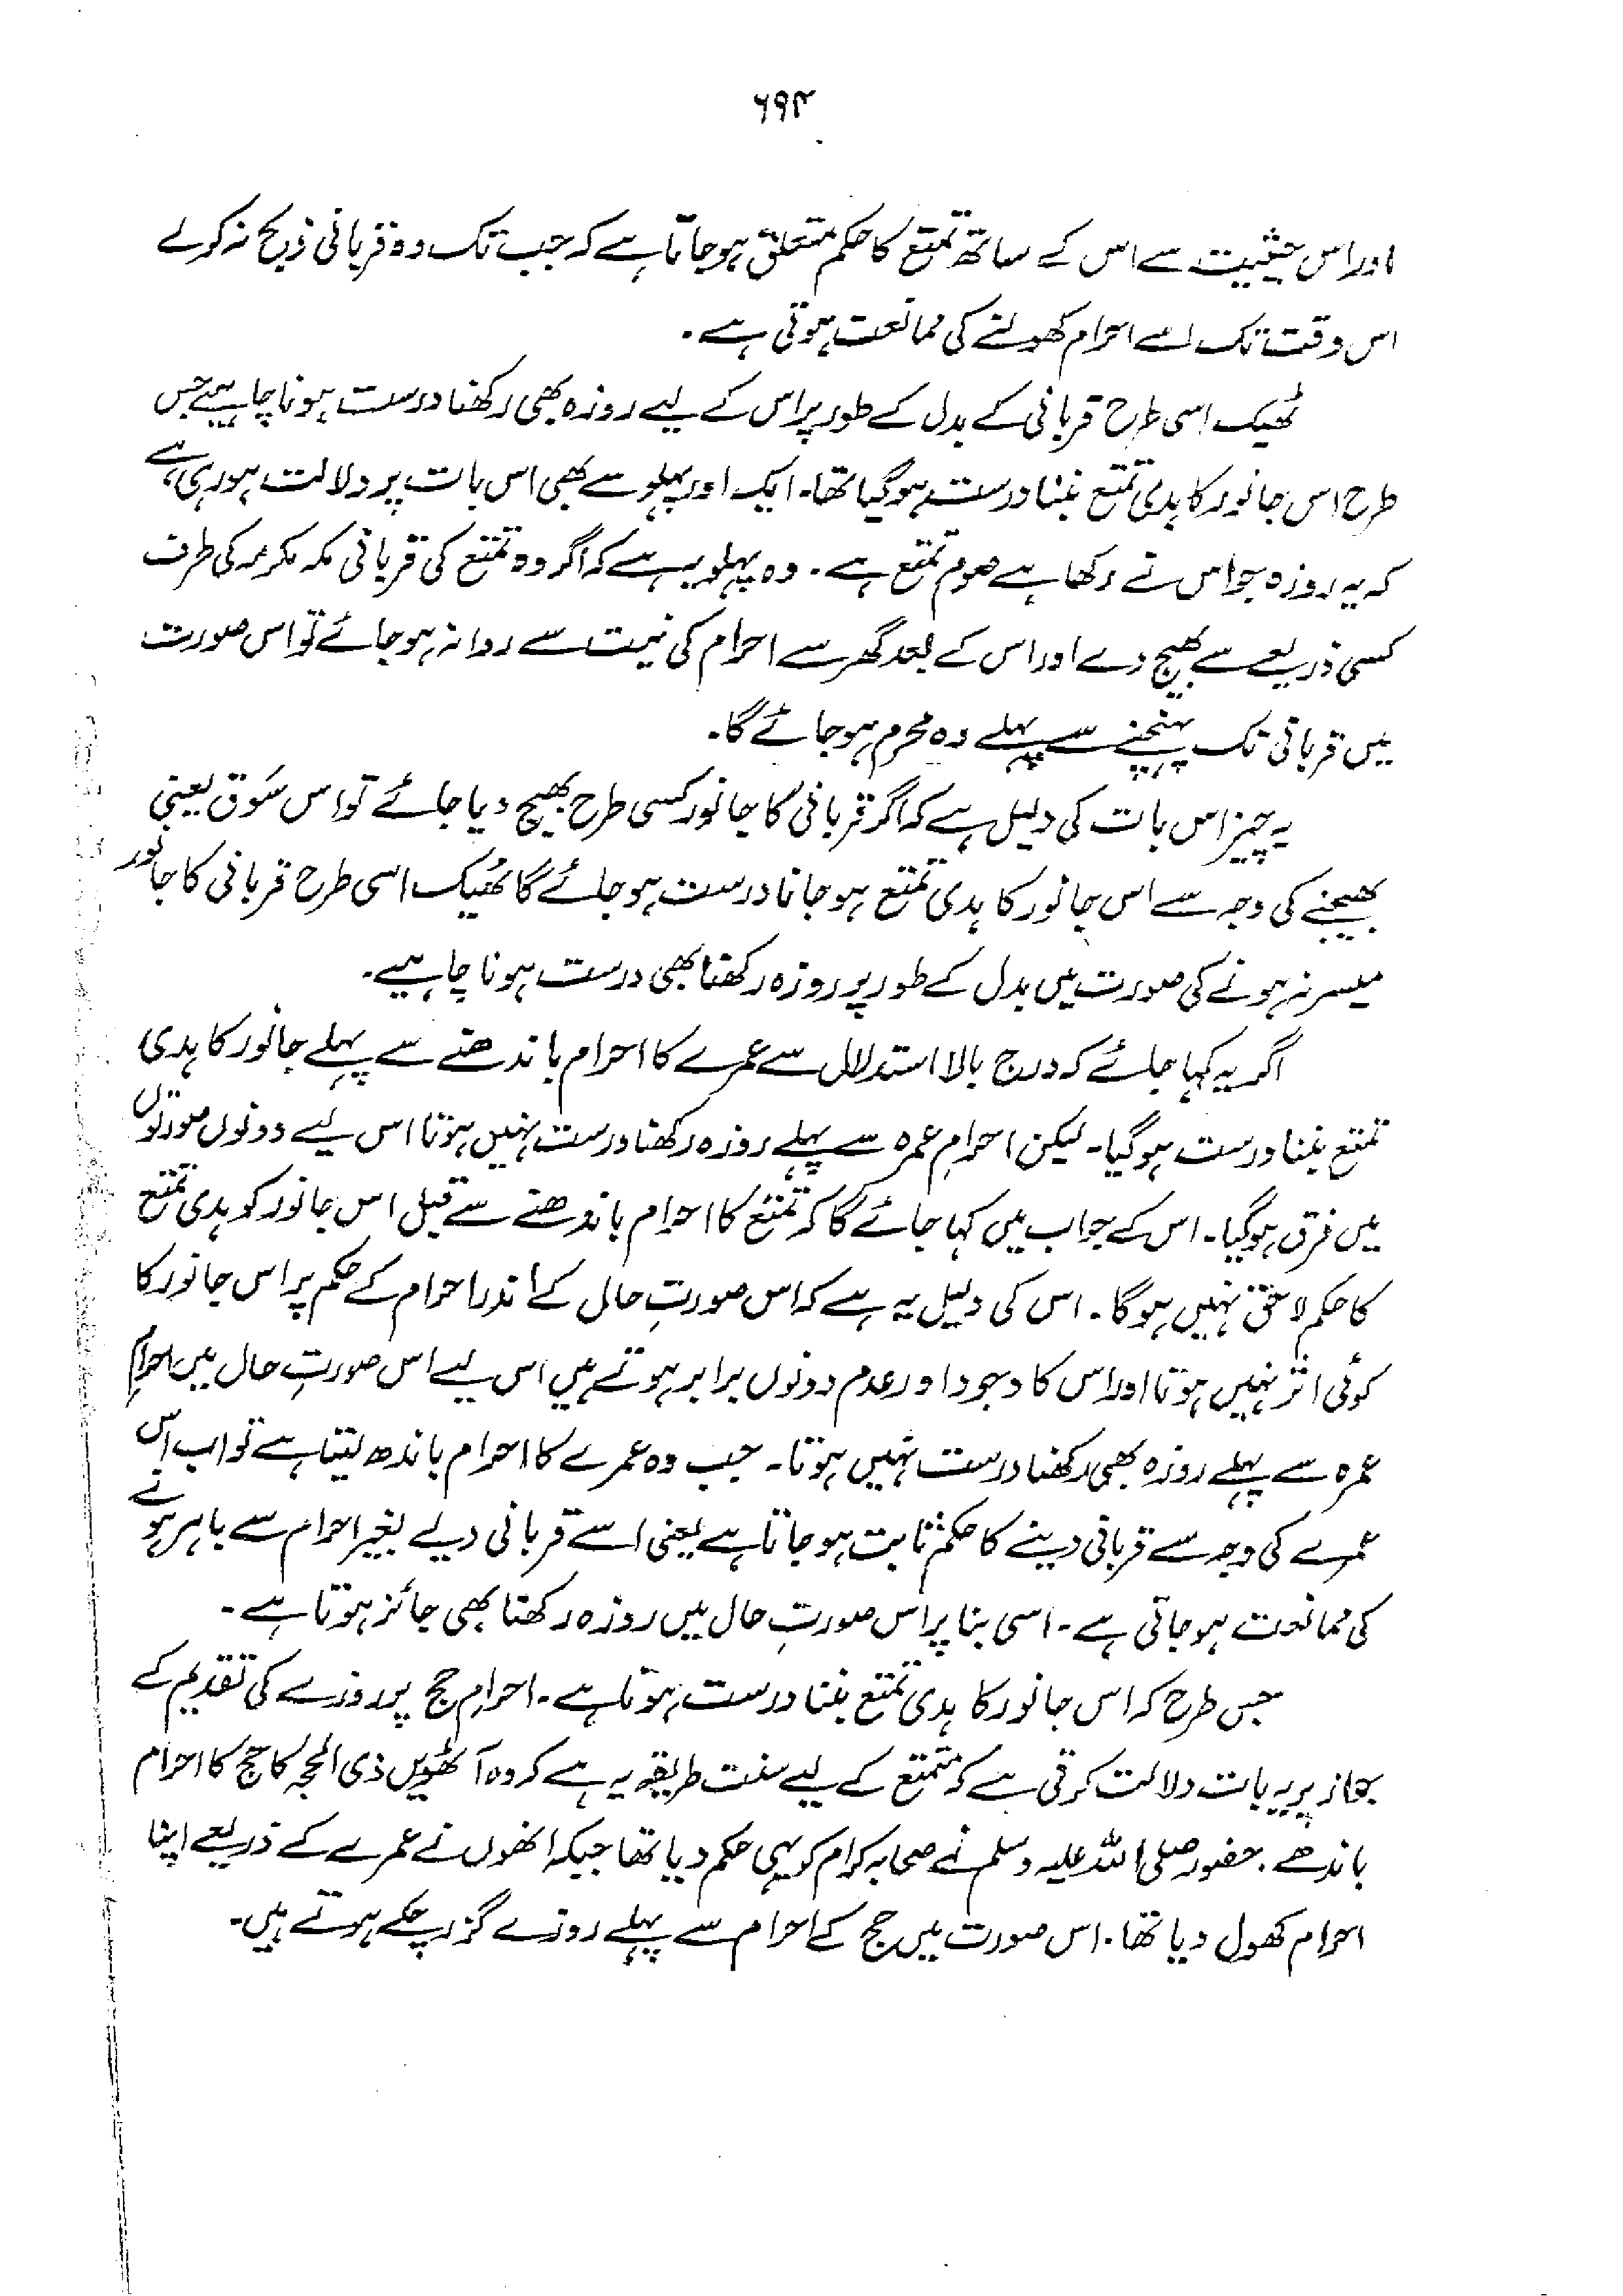 ۶۹۴
اور اس حیثیت سے اس کے ساتھ تمتع کا حکم متعلق ہو جاتا ہے کہ جب تک وہ قربانی ذبح نہ کرلے
اس وقت تک اسے احرام کھولنے کی ممانعت ہوتی ہے۔
ٹھیک اسی طرح قربانی کے بدل کے طور پر اس کے لیے روزہ بھی رکھنا درست ہونا چاہیے جس
طرح اس جانور کا ہدی تمتع بننا درست ہو گیا تھا۔ ایک اور پہلو سے بھی اس بات پر دلالت ہو رہی ہے
کہ یہ روزہ جو اس نے رکھا ہے صوم تمتع ہے۔ وہ پہلو یہ ہے کہ اگر وہ تمتع کی قربانی مکہ مکرمہ کی طرف
کسی ذریعے سے بھیج دے اور اس کے بعد گھر سے احرام کی نیت سے روانہ ہو جائے تو اس صورت
میں قربانی تک پہنچنے سے پہلے وہ محرم ہو جائے گا۔
یہ چیز اس بات کی دلیل ہے کہ اگر قربانی کا جانور کسی طرح بھیج دیا جائے تو اس سَوق یعنی
بھیجنے کی وجہ سے اس جانور کا ہدی تمتع ہو جانا درست ہو جائے گا ٹھیک اسی طرح قربانی کا جانور
میسر نہ ہونے کی صورت میں بدل کے طور پر روزہ رکھنا بھی درست ہونا چاہیے۔
اگر یہ کہا جائے کہ درج بالا استدلال سے عمرے کا احرام باندھنے سے پہلے جانور کا ہدی
تمتع بننا درست ہو گیا۔ لیکن احرامِ عمرہ سے پہلے روزہ رکھنا درست نہیں ہوتا اس لیے دونوں صورتوں
میں فرق ہو گیا۔ اس کے جواب میں کہا جائے گا کہ تمتع کا احرام باندھنے سے قبل اس جانور کو ہدی تمتع
کا حکم لاحق نہیں ہو گا۔ اس کی دلیل یہ ہے کہ اس صورتِ حال کے اندر احرام کے حکم پر اس جانور کا
کوئی اثر نہیں ہوتا اور اس کا وجود اور عدم دونوں برابر ہوتے ہیں اس لیے اس صورتِ حال میں احرامِ
عمرہ سے پہلے روزہ بھی رکھنا درست نہیں ہوتا۔ جب وہ عمرے کا احرام باندھ لیتا ہے تو اب اس
عمرے کی وجہ سے قربانی دینے کا حکم ثابت ہو جاتا ہے یعنی اسے قربانی دیے بغیر احرام سے باہر ہونے
کی ممانعت ہو جاتی ہے۔ اسی بنا پر اس صورتِ حال میں روزہ رکھنا بھی جائز ہوتا ہے۔
جس طرح کہ اس جانور کا ہدی تمتع بننا درست ہوتا ہے۔ احرامِ حج پر روزے کی تقدیم کے
جواز پر یہ بات دلالت کرتی ہے کہ متمتع کے لیے سنت طریقہ یہ ہے کہ وہ آٹھویں ذی الحجہ کا حج کا احرام
باندھے۔ حضور صلی اللہ علیہ وسلم نے صحابہ کرام کو یہی حکم دیا تھا جبکہ انھوں نے عمرے کے ذریعے اپنا
احرام کھول دیا تھا۔ اس صورت میں حج کے احرام سے پہلے روزے گزر چکے ہوتے ہیں۔